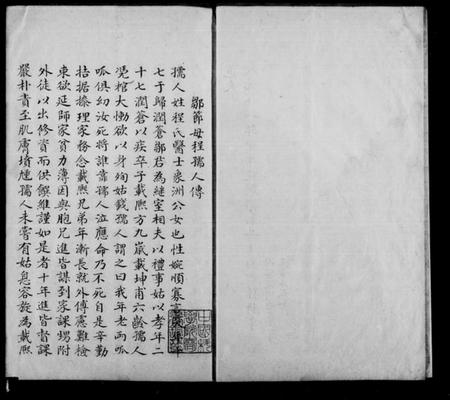 鄒節母程孺人傳
孺人姓程氏醫士象洲公女也性婉順寡言笑年十
七于歸潤蒼鄒君為繼室相夫以禮事姑以孝年二
十七潤蒼以疾卒子載熙方九歲載坤甫六齡孺人
憑棺大慟欲以身殉姑錢孺人謂之曰我年老而呱
呱俱幼汝死將誰靠孺人泣應命乃不死自是辛勤
拮据操理家務念載熙兄弟年漸長就外傅慮難檢
束欲延師家貧力薄因與胞兄進皆謀到家課甥附
外徒以出修資而供饌維謹如是者十年進皆督課
嚴朴責至肌膚墳腫孺人未嘗有姑息容旋為載熙